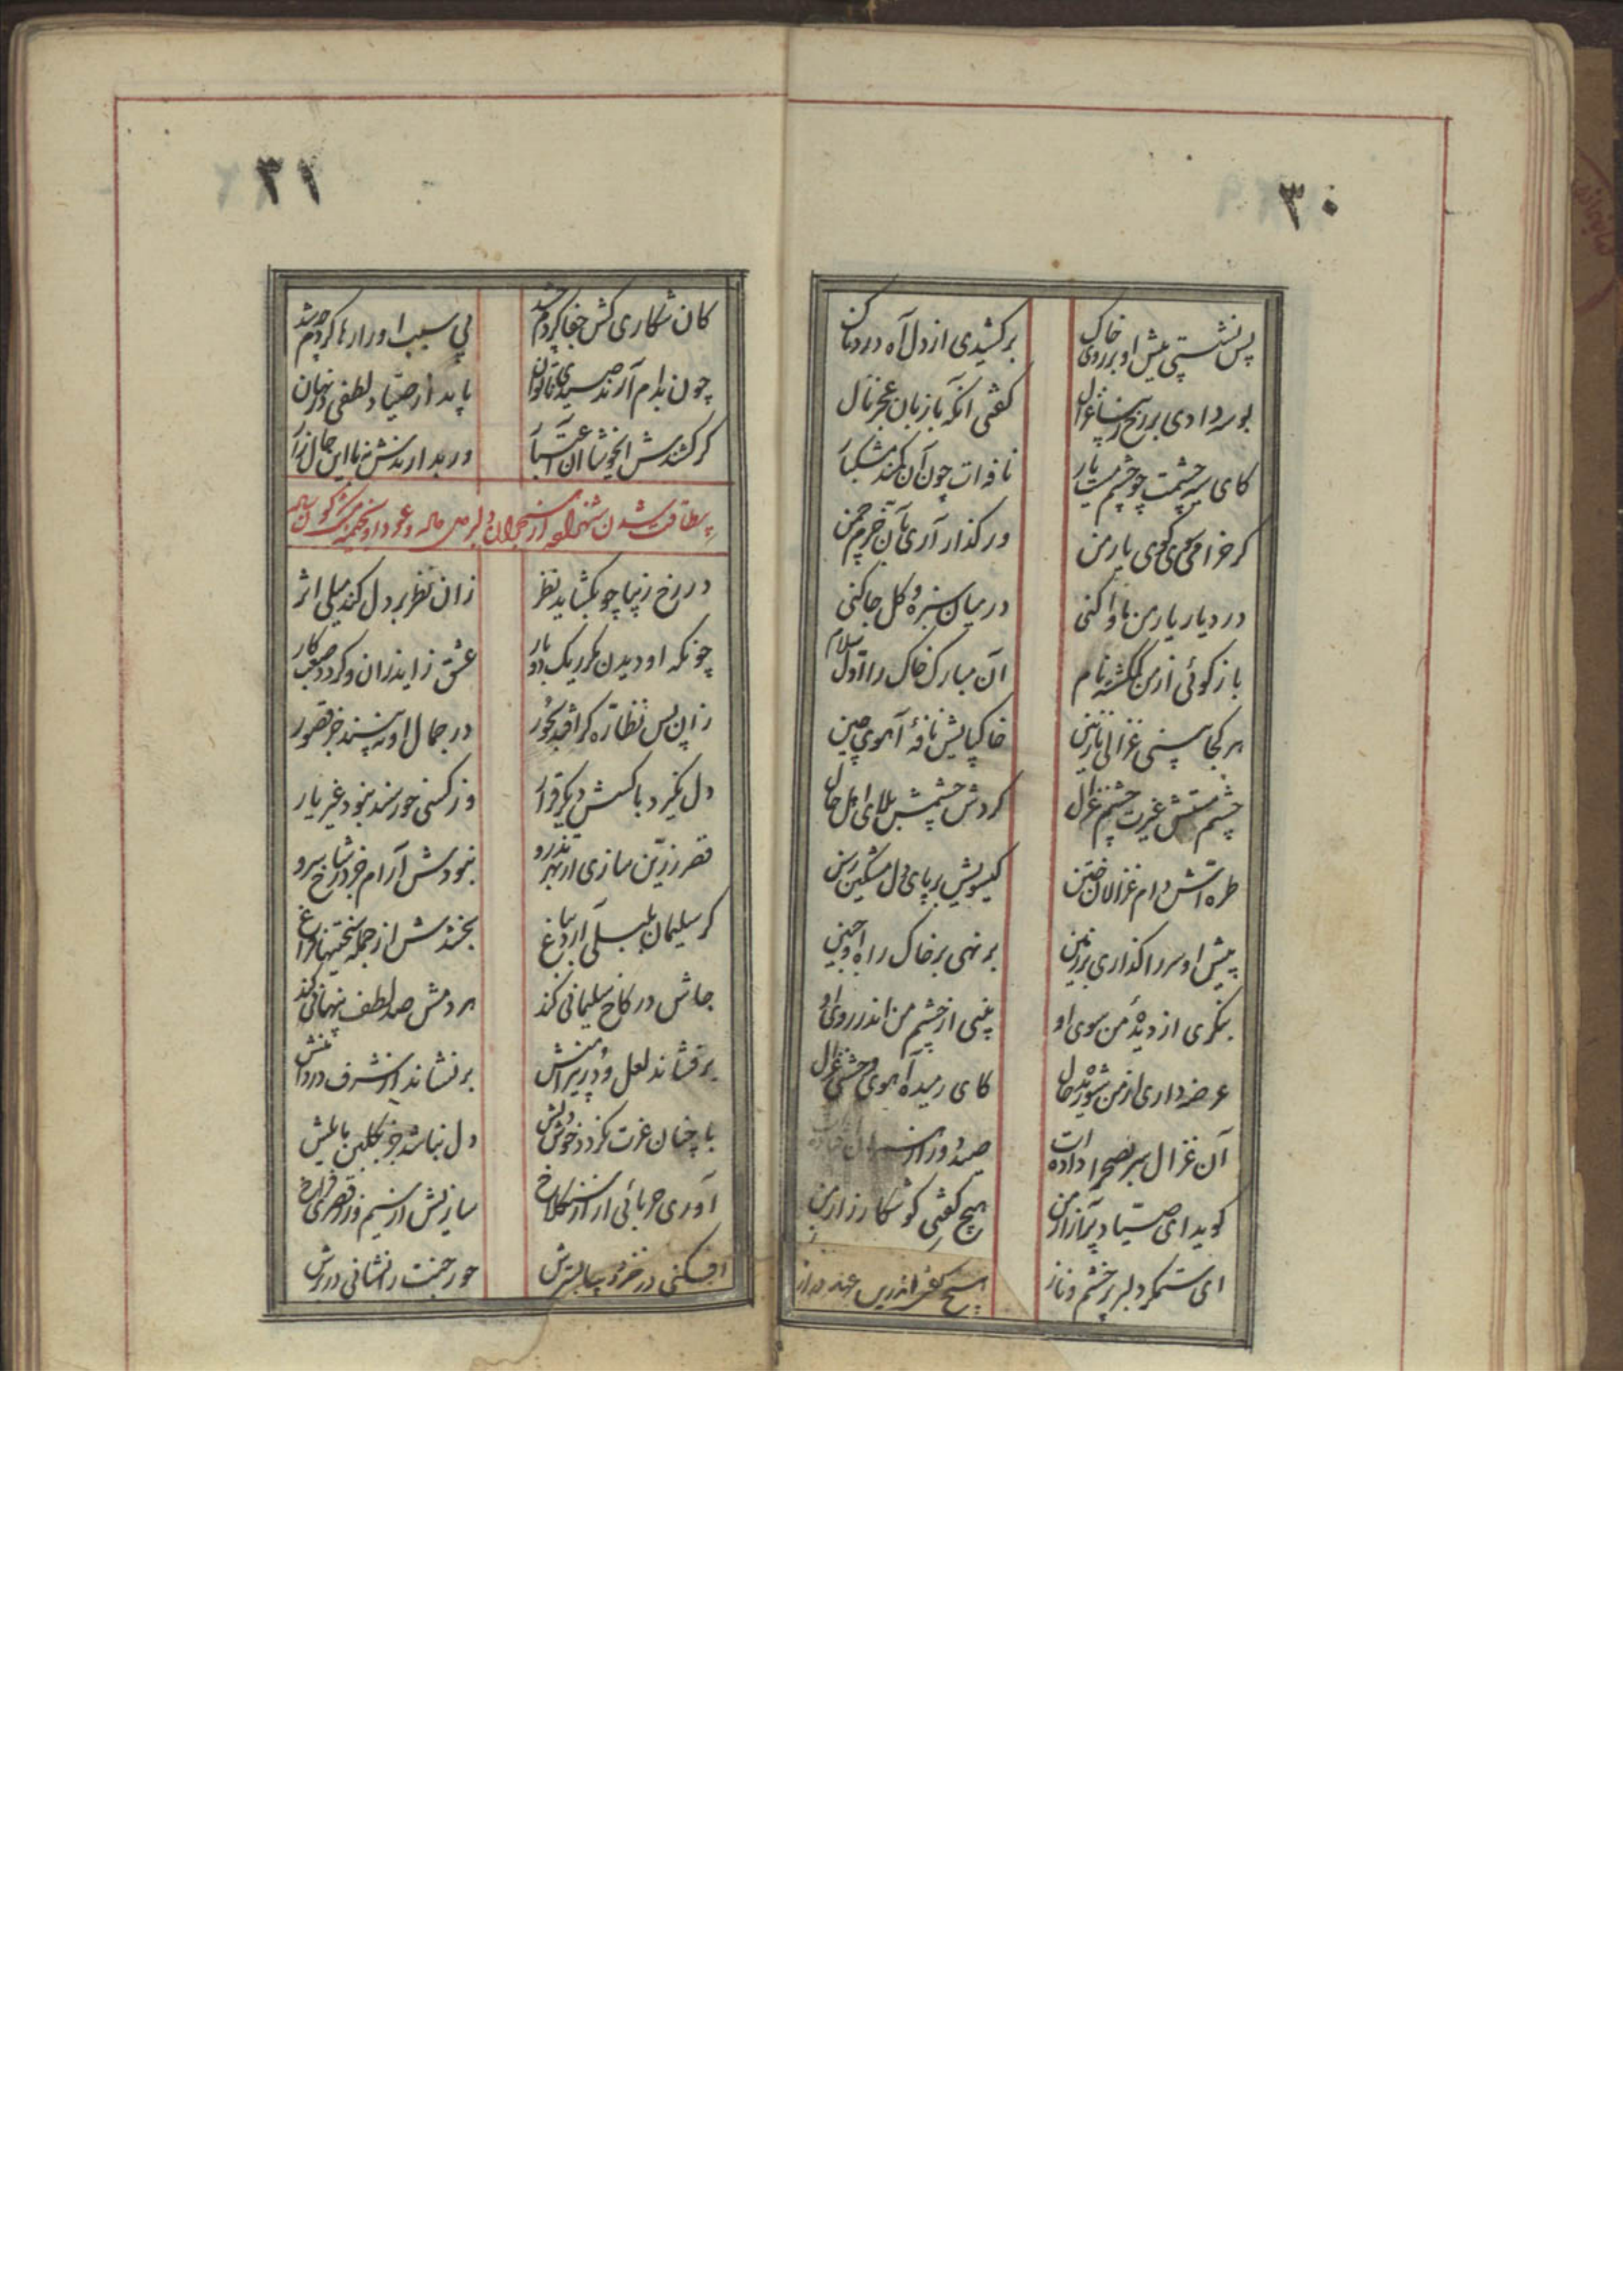 ۳۰
پس نشستی پیش او بر روی خاک برکشیدی از دل آه دردناک
بوسه دادی بر رخ غزال گفتی آنگه با زبان عجز نال
کای سیه چشمت چو چشم مست یار نافه‌ات چون آن کمند مشکبار
گر خرامی سوی کوی یار من ور گذار آری بآن خرم چمن
در دیار یار من ماوا کنی در میان سبزه و گل جا کنی
بازگوئی از من گمگشته نام آن مبارک خاک را اول سلام
هر کجا بینی غزالی نازنین خاک پایش نافهٔ آهوی چین
چشم مستش غیرت چشم غزال گردش چشمش بلای اهل حال
طره‌اش دام غزالان ختن گیسویش بر پای دل مشکین رسن
پیش او سر را گذاری بر زمین برنهی بر خاک راه او جبین
بنگری از دیدهٔ من سوی او بینی از چشم من اندر روی او
عرضه داری از من شوریده حال کای رمیده آهوی وحشی غزال
آن غزال سر بصحرا داده‌ات صید دور از
گوید ای صیاد پرآزار من هیچ گفتی کو شکار زار من
ای ستمگر دلبر پر خشم و ناز هیچ گفتی اندرین عهد دراز
۳۱
کان شکاری کش جفا کردم چه شد بی سبب او را رها کردم چه شد
چون بدام آرند صیدی ناتوان باید از صیاد لطفی در نهان
گر کشندش ای خوشا آن ور بدارندش نه با این حال زار
بیطاقت شدن شهزاده از هجران دلبر
در رخ زیبا چو بگشاید نظر زان نظر بر دل کند میلی اثر
چونکه او دیدن مکرر یک دو بار عشق زاید زان و گردد صعب کار
زان پس نظاره گر افتد بحور در جمال او نه بیند جز قصور
دل نگیرد با کسش دیگر قرار وز کسی خورسند نبود غیر یار
قصر زرین سازی از بهر تذرو نبودش آرام جز در شاخ سرو
گر سلیمان بلبلی آرد بباغ بخشدش از جمله سختیها فراغ
جاش در کاخ سلیمانی کند هر دمش صد لطف پنهانی کند
برفشاند لعل و در پیرامنش برنشاند از شرف در دامنش
با چنان عزت نگردد خوش دلش دل نباشد جز بگلبن مایلش
آوری حربائی ار از سنگلاخ سازیش از سیم و زر قصری فراخ
افکنی در خز و دیبا بسترش حور جنت را نشانی در برش